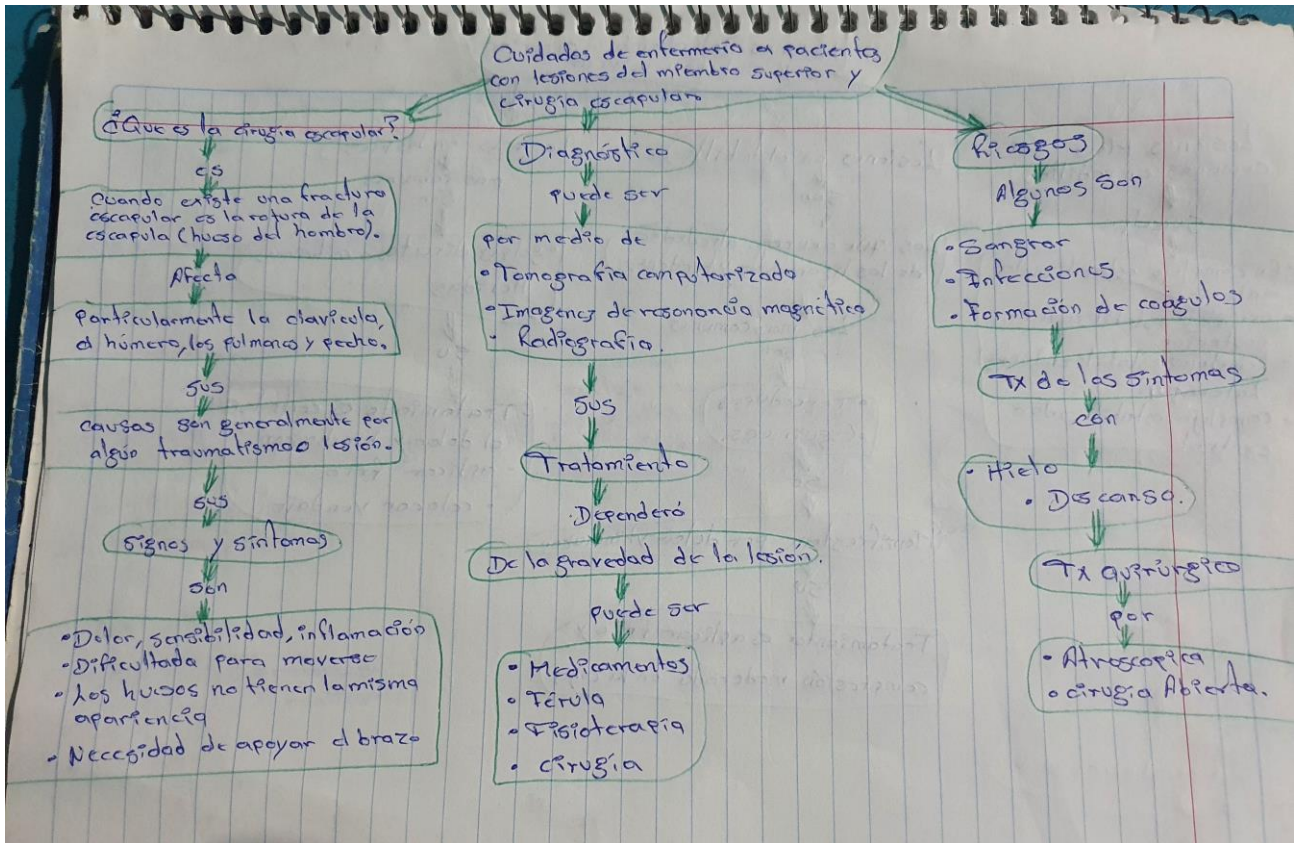 Cuidados de enfermeria a pacientes
con lesiones del miembro superior y
cirugía escapular
¿Que es la cirugia escapular?
es
Cuando existe una fractura
escapular es la rotura de la
escapula (hueso del hombro).
Afecta
Particularmente la clavicula,
el húmero, los pulmones y pecho.
sus
causas son generalmente por
algún traumatismo o lesión.
sus
Signos y sintomas
son
•Dolor, sensibilidad, inflamación
•Dificultada para moverse
•Los huesos no tienen la misma
apariencia
•Necesidad de apoyar el brazo
Diagnóstico
puede ser
por medio de
•Tomografia computarizada
•Imagenes de resonancia magnética
•Radiografia.
sus
Tratamiento
Dependerá
De la gravedad de la lesión.
puede ser
•Medicamentos
•Férula
•Fisioterapia
•cirugía
Riesgos
Algunos son
•Sangrar
•Infecciones
•Formación de coágulos
Tx de los sintomas
con
•Hielo
•Descanso.
Tx quirúrgico
por
•Atroscopica
•cirugia Abierta.